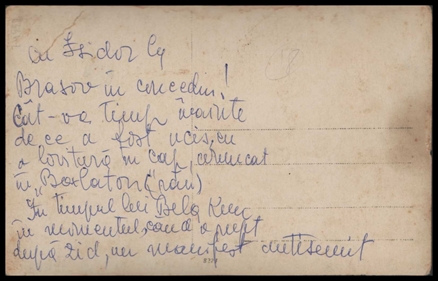 cu Isidor la
Brasov în concediu!
Cât-va timp înainte
de ce a fost ucis, cu
o lovitură în cap, aruncat
în "Balaton" (rău)
În timpul lui Bela Kun
în momentul, cand a rupt
după zid, un manifest antisemit